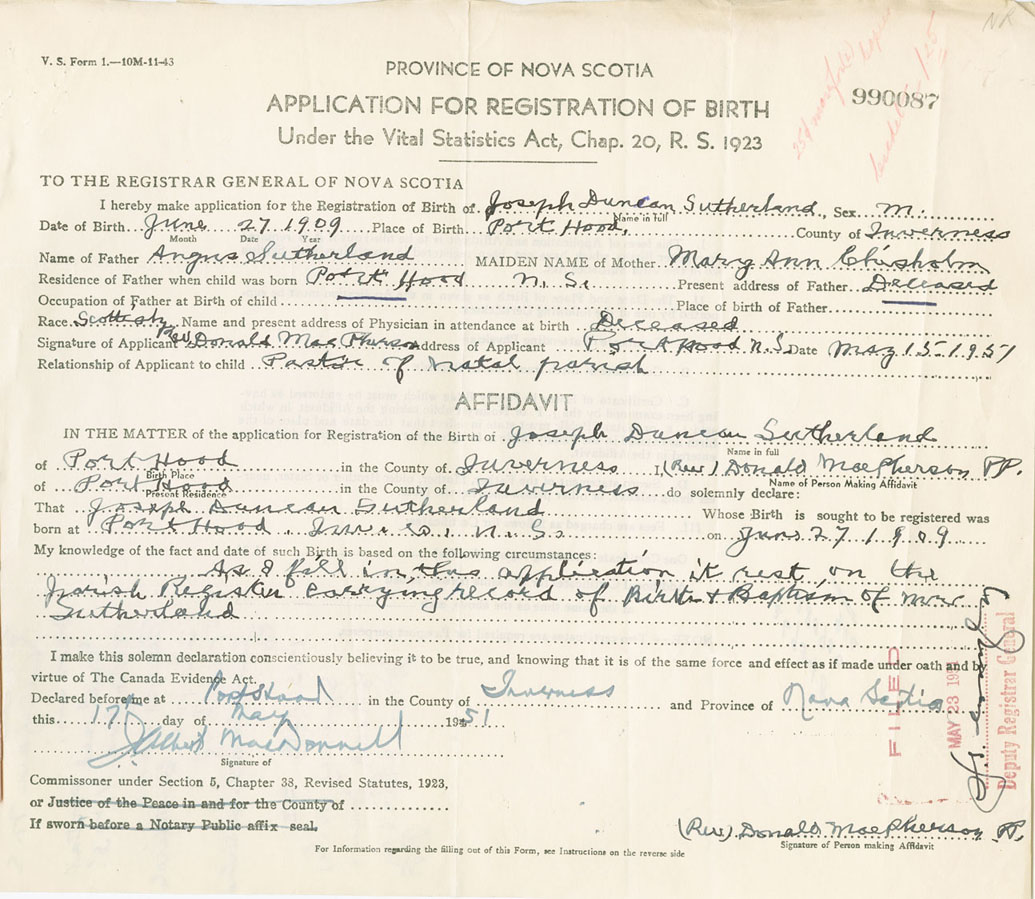 NR
V. S. Form 1.—10M-11-43
PROVINCE OF NOVA SCOTIA
990087
APPLICATION FOR REGISTRATION OF BIRTH
Under the Vital Statistics Act, Chap. 20, R. S. 1923
TO THE REGISTRAR GENERAL OF NOVA SCOTIA
I hereby make application for the Registration of Birth of Joseph Duncan Sutherland, Sex M.
Name in full
Date of Birth June 27 1909 Place of Birth Port Hood, County of Inverness
Month Date Year
Name of Father Angus Sutherland MAIDEN NAME of Mother Mary Ann Chisholm
Residence of Father when child was born Port Hood N. S. Present address of Father Deceased
Occupation of Father at Birth of child Place of birth of Father
Race Scottish Name and present address of Physician in attendance at birth Deceased
Signature of Applicant Rev Donald MacPherson Address of Applicant Port Hood N.S. Date May 15-1951
Relationship of Applicant to child Pastor of natal parish
AFFIDAVIT
IN THE MATTER of the application for Registration of the Birth of Joseph Duncan Sutherland
Name in full
of Port Hood in the County of Inverness I, (Rev) Donald MacPherson PP.
Birth Place Name of Person Making Affidavit
of Port Hood in the County of Inverness do solemnly declare:
Present Residence
That Joseph Duncan Sutherland Whose Birth is sought to be registered was
born at Port Hood, Inv. Co. N. S. on June 27 1909
My knowledge of the fact and date of such Birth is based on the following circumstances:
As I fill in this application it rest on the
Parish Register carrying record of Birth & Baptism of
Sutherland
I make this solemn declaration conscientiously believing it to be true, and knowing that it is of the same force and effect as if made under oath and by
virtue of The Canada Evidence Act.
Declared before me at Port Hood in the County of Inverness and Province of Nova Scotia
this 17th day of May 1951
J. Albert MacDonnell
Signature of
Commissioner under Section 5, Chapter 38, Revised Statutes, 1923,
or Justice of the Peace in and for the County of
If sworn before a Notary Public affix seal.
(Rev). Donald MacPherson PP.
Signature of Person making Affidavit
For Information regarding the filling out of this Form, see Instructions on the reverse side
FILED
MAY 23 195
Deputy Registrar General